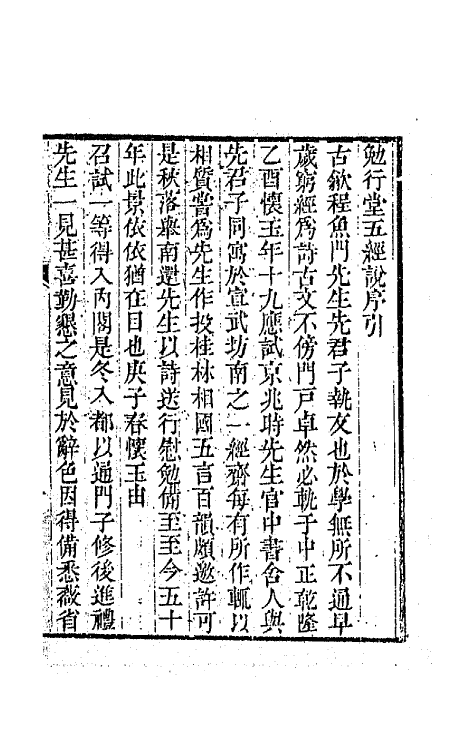 勉行堂五經說序引
古歙程魚門先生先君子執友也於學無所不通早
歲窮經爲詩古文不傍門戸卓然必軌于中正乾隆
乙酉懷玉年十九應試京兆時先生官中書舍人與
先君子同寓於宣武坊南之一經齋每有所作輒以
相質嘗爲先生作投桂林相國五言百韻頗邀許可
是秋落舉南還先生以詩送行慰勉備至至今五十
年此景依依猶在目也庚子春懷玉由
召試一等得入內閣是冬入都以通門子修後進禮
先生一見甚喜勤懇之意見於辭色因得備悉薇省